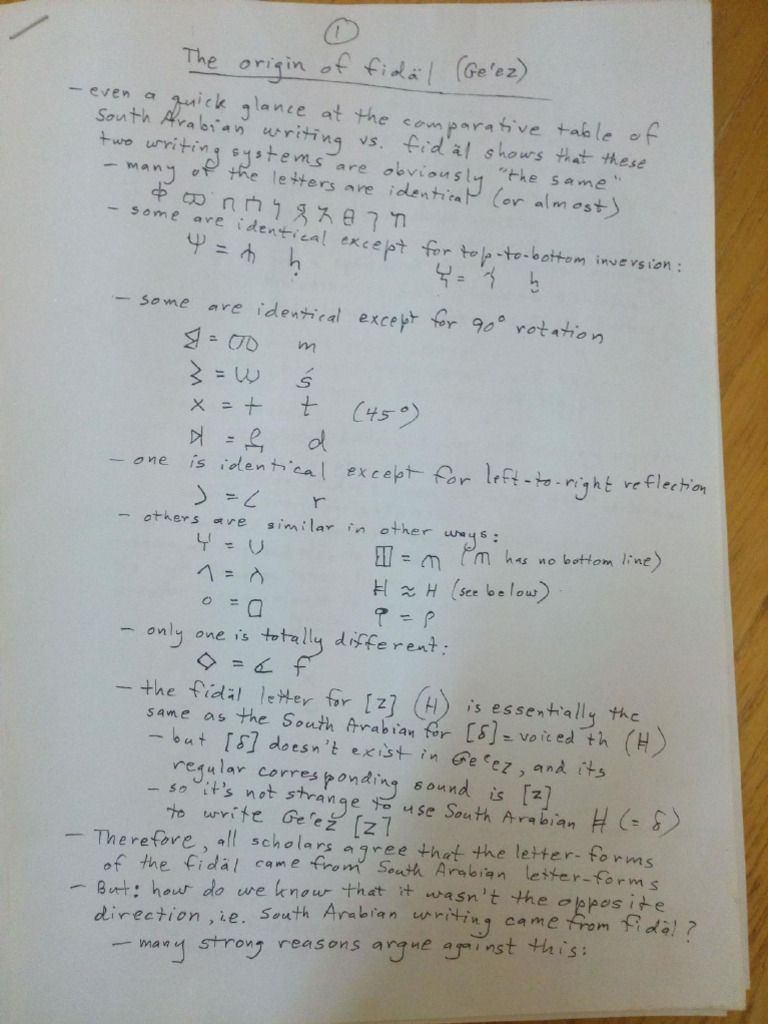 1
The origin of fidäl (Ge'ez)
- even a quick glance at the comparative table of
South Arabian writing vs. fidäl shows that these
two writing systems are obviously "the same"
- many of the letters are identical (or almost)
- some are identical except for top-to-bottom inversion:
Ψ = ሐ ḥ
= ኀ ḫ
- some are identical except for 90° rotation
= መ m
= ሠ ś
x = + t (45°)
= ደ d
- one is identical except for left-to-right reflection
= r
- others are similar in other ways:
= ሀ
= ጠ (ጠ has no bottom line)
= ለ
≈ H (see below)
= ዐ
= የ
- only one is totally different:
◇ = f
- the fidäl letter for [z] (H) is essentially the
same as the South Arabian for [δ] = voiced th (H)
- but [δ] doesn't exist in Ge'ez, and its
regular corresponding sound is [z]
- so it's not strange to use South Arabian H (= δ)
to write Ge'ez [z]
- Therefore, all scholars agree that the letter-forms
of the fidäl came from South Arabian letter-forms
- But: how do we know that it wasn't the opposite
direction, i.e. South Arabian writing came from fidäl?
- many strong reasons argue against this: